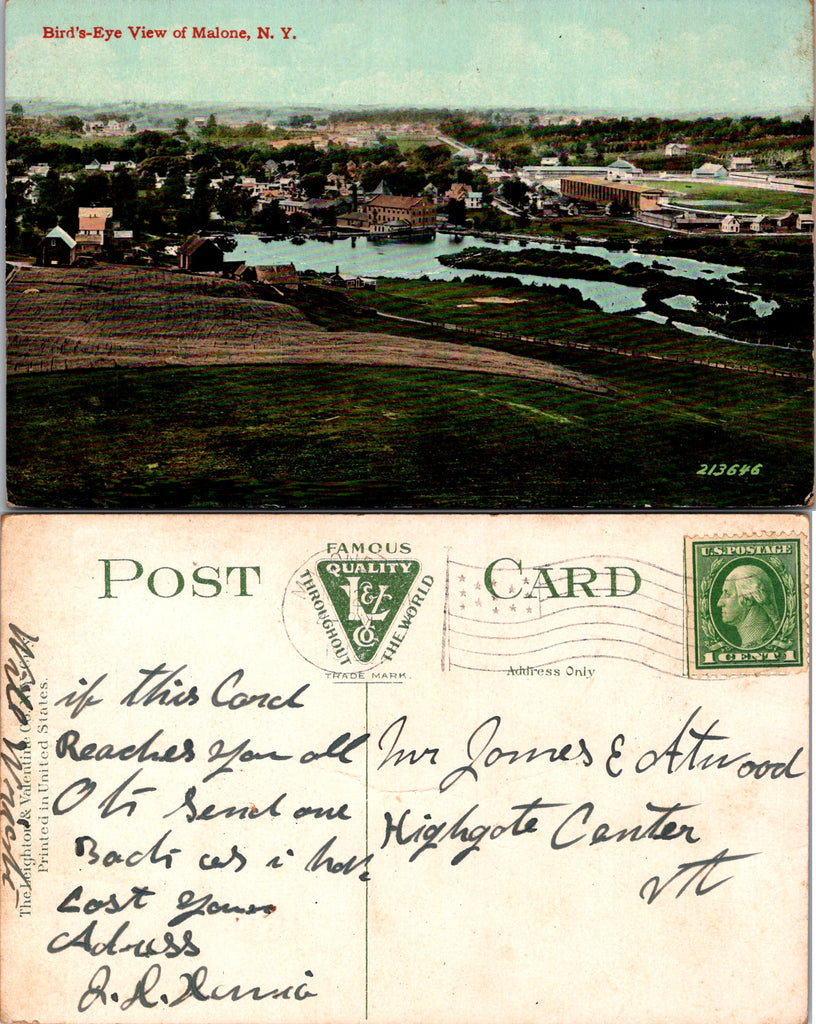 Bird's-Eye View of Malone, N. Y.
213646
POST CARD
FAMOUS
QUALITY
THROUGHOUT THE WORLD
L & V
Co
TRADE MARK.
Address Only
U.S. POSTAGE
1 CENT 1
The Leighton & Valentine Co.
Printed in United States.
if this Card
Reaches you all
O K Send one
Back as i have
Lost your
Adress
Mr James E Atwood
Highgate Center
Vt